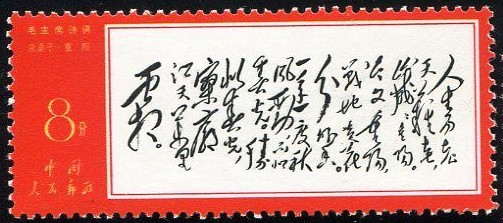 毛主席诗词
采桑子·重阳
8分
中国
人民邮政
人生易老
天难老
岁岁重阳
今又重阳
战地黄花
分外香
一年一度秋
风劲不似
春光胜
似春光
寥廓
江天万里
霜